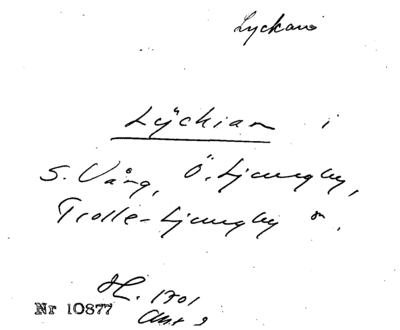 Lyckans
Lÿckian i
S. Vång, Ö. Ljungby,
Trolle-Ljungby s.
1701
Nr 10877